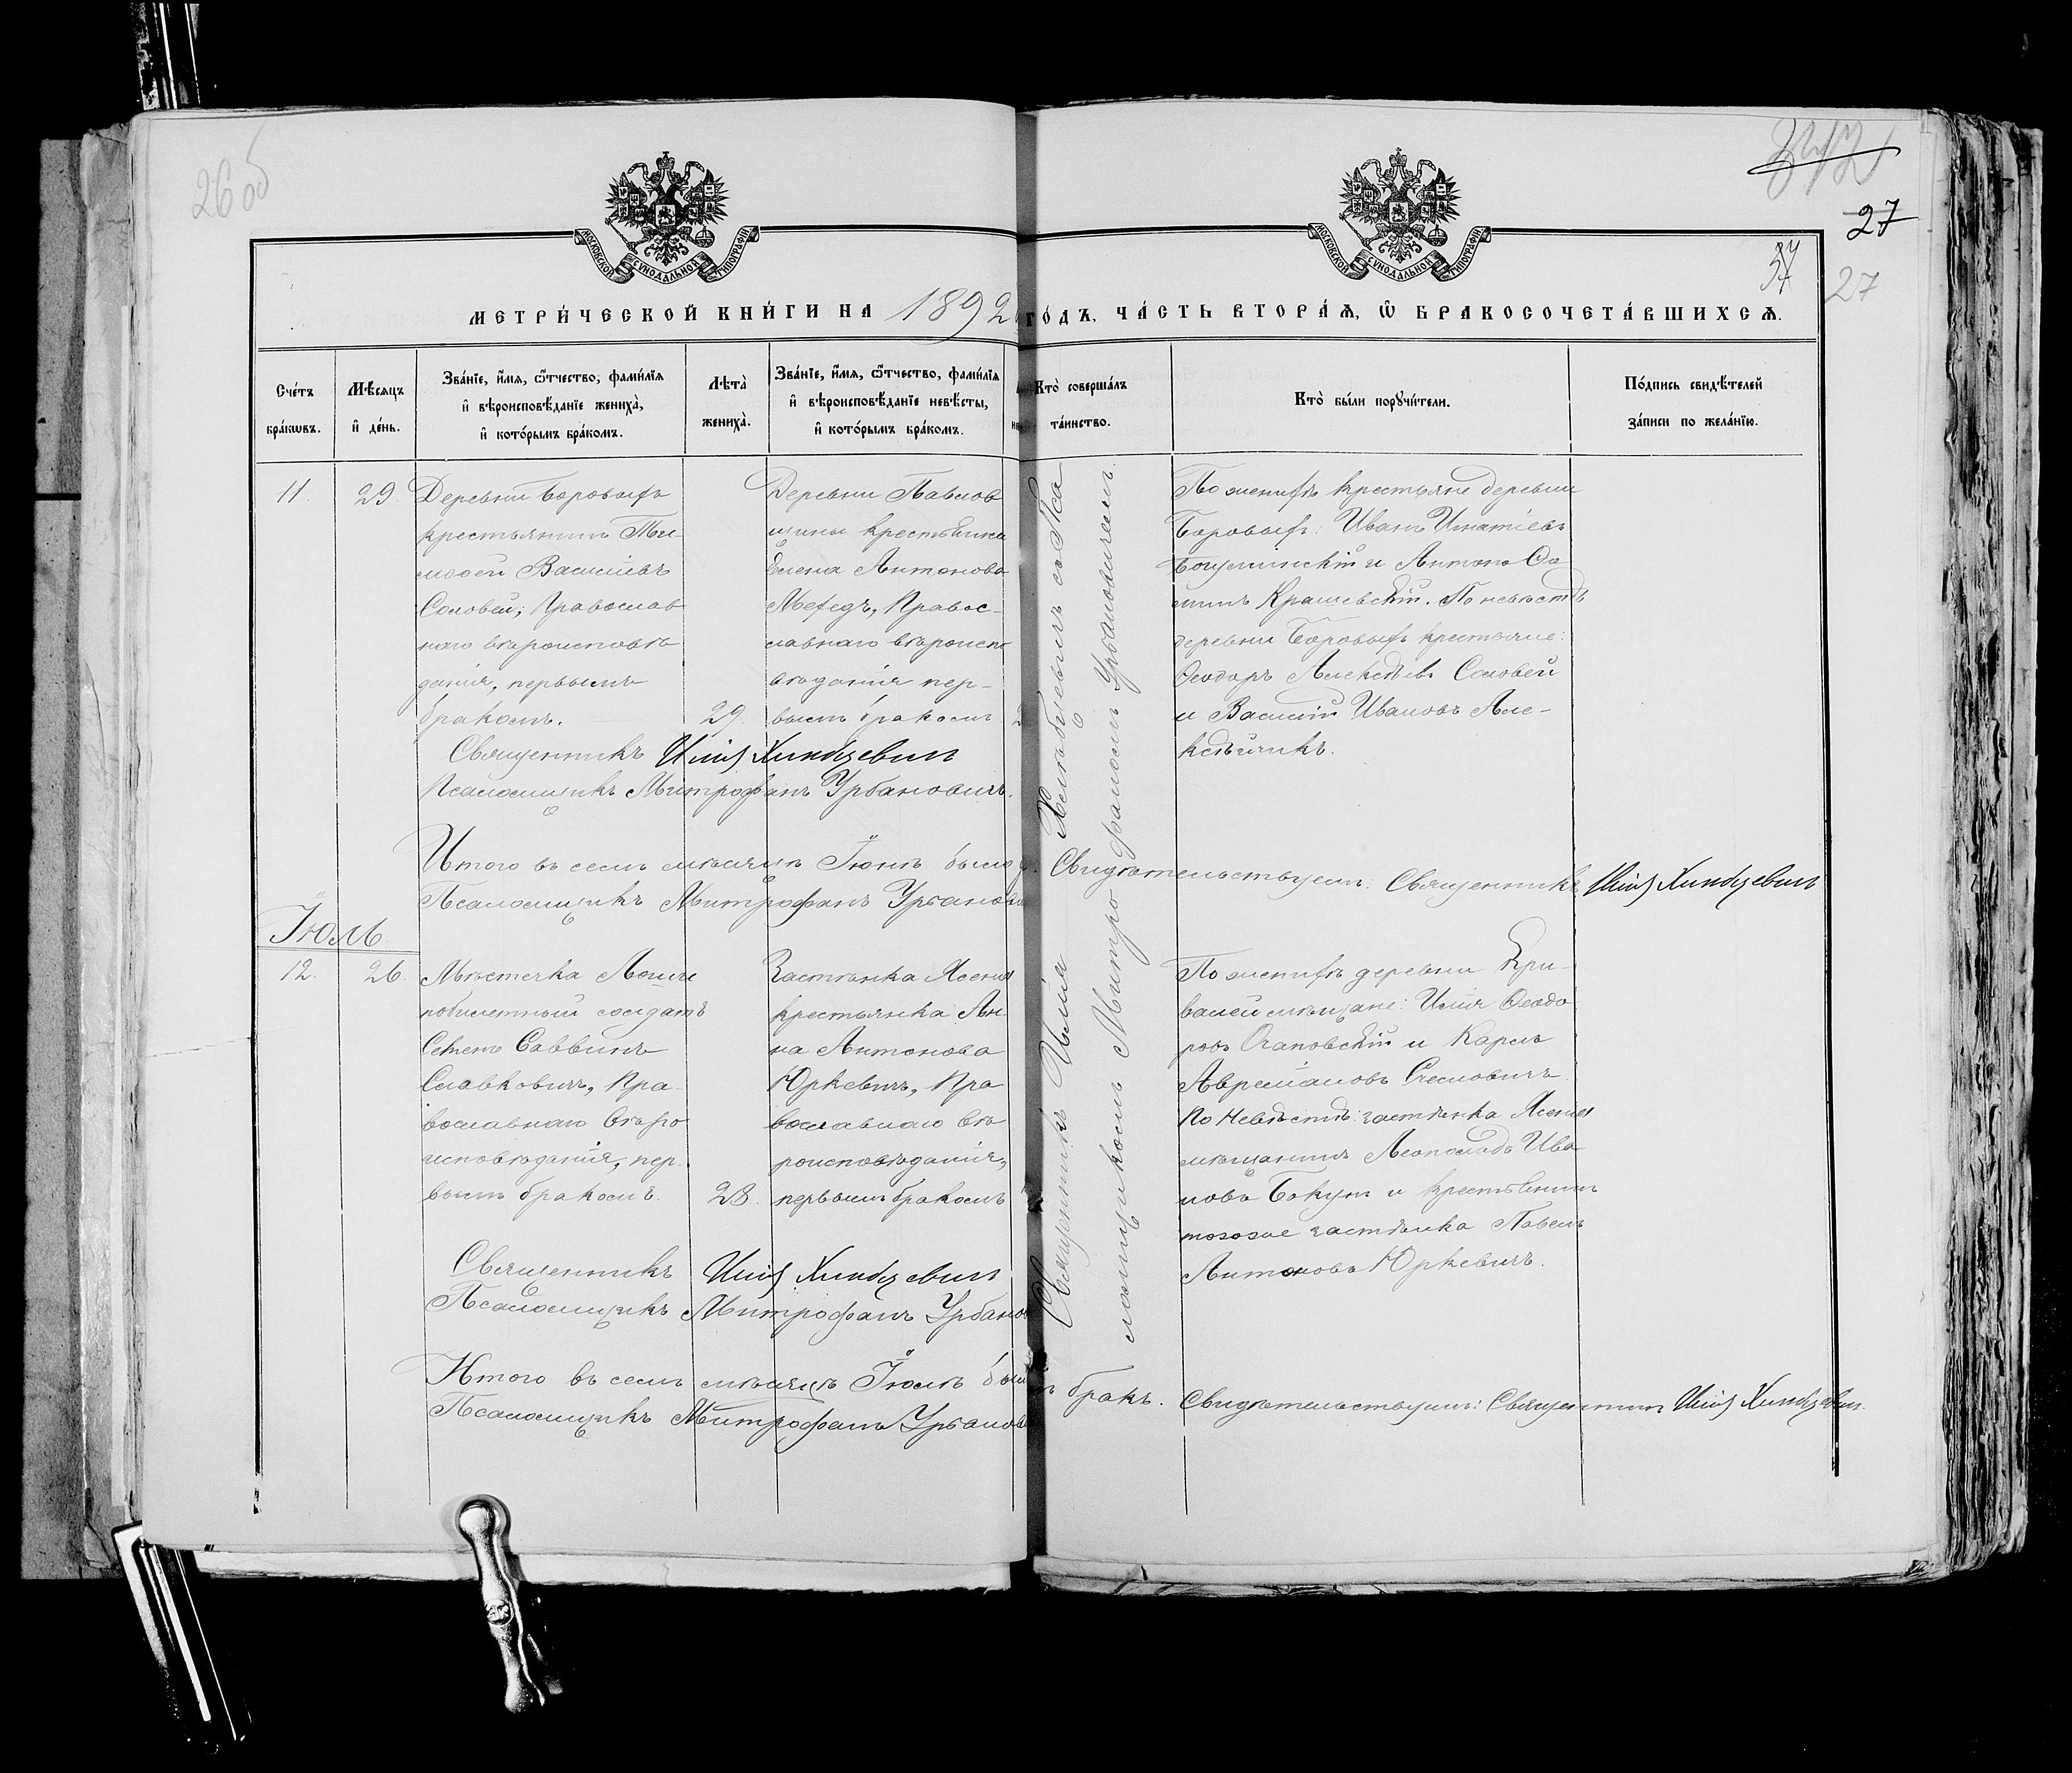 26 об
27
27
МОСКОВСКОЙ СѴНОДАЛЬНОЙ ТИПОГРАФІИ
МОСКОВСКОЙ СѴНОДАЛЬНОЙ ТИПОГРАФІИ
МЕТРИ́ЧЕСКОЙ КНИ́ГИ НА 1892 ГО́ДЪ, ЧА́СТЬ ВТОРА́Я, Ѿ БРАКОСОЧЕТА́ВШИХСЯ.
Сче́тъ
бра́кωвъ.
Мѣ́сяцъ
и҆ де́нь.
Зва́нїе, и҆́мя, ѻ҆́тчество, фами́лїя
и҆ вѣроисповѣ́данїе жениха̀,
и҆ кото́рымъ бра́комъ.
Лѣта̀
жениха̀.
Зва́нїе, и҆́мя, ѻ҆́тчество, фами́лїя
и҆ вѣроисповѣ́данїе невѣ́сты,
и҆ кото́рымъ бра́комъ.
Кто̀ соверша́лъ
та́инство.
Кто̀ бы́ли порꙋчи́тели.
По́дпись свидѣ́телей
за́писи по жела́нїю.
11.
29.
Деревни Боровыхъ
крестьянинъ Ти-
моѳей Васильевъ
Соловей, Православ
наго вѣроисповѣ
данія, первымъ
бракомъ.
29.
Деревни Павлов
щины крестьянка
Елена Антонова
Мехедъ, Правос-
лавнаго вѣроиспо
вѣданія пер-
вымъ бракомъ
По женихѣ крестьяне деревни
Боровыхъ: Иванъ Игнатіевъ
и Антонъ
Крашевскій. По невѣстѣ
деревни Боровыхъ крестьяне:
Ѳеодоръ Алексѣевъ Соловей
и Василій Ивановъ Але-
ксѣйчикъ.
Священникъ Илія Хиндцевич
Псаломщикъ Митрофанъ Урбановичъ.
Итого въ семъ мѣсяцѣ Іюнѣ было
Свидѣтельствуемъ: Священникъ Илія Хиндцевич
Псаломщикъ Митрофанъ Урбанов
Священникъ Илія съ Пса
ломщикомъ Митрофаномъ Урбановичемъ.
Іюль
12.
26.
Мѣстечка
побилетный солдатъ
Саввинъ
Славковичъ, Пра
вославнаго вѣро
исповѣданія, пер
вымъ бракомъ.
28.
Застѣнка Ясенія
крестьянка Ан
на Антонова
Юркевичъ, Пра
вославнаго вѣ
роисповѣданія,
первымъ бракомъ
По женихѣ деревни Кри-
валей мѣщане: Илія Ѳеодо
ровъ и Карлъ
По невѣстѣ: застѣнка Ясенія
мѣщанинъ Леопольдъ Ива
новъ Бокунъ и крестьянинъ
тогоже застѣнка Павелъ
Антоновъ Юркевичъ.
Священникъ Илія Хиндцевич
Псаломщикъ Митрофанъ Урбанов
Итого въ семъ мѣсяцѣ Іюлѣ был
бракъ. Свидѣтельствуемъ: Священникъ Илія Хиндцевич
Псаломщикъ Митрофанъ Урбанов